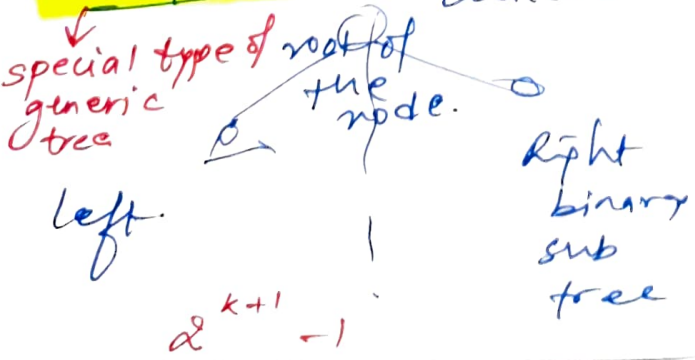 special type of
generic
tree
root of
the
node.
left.
Right
binary
sub
tree
2^{k+1} -1